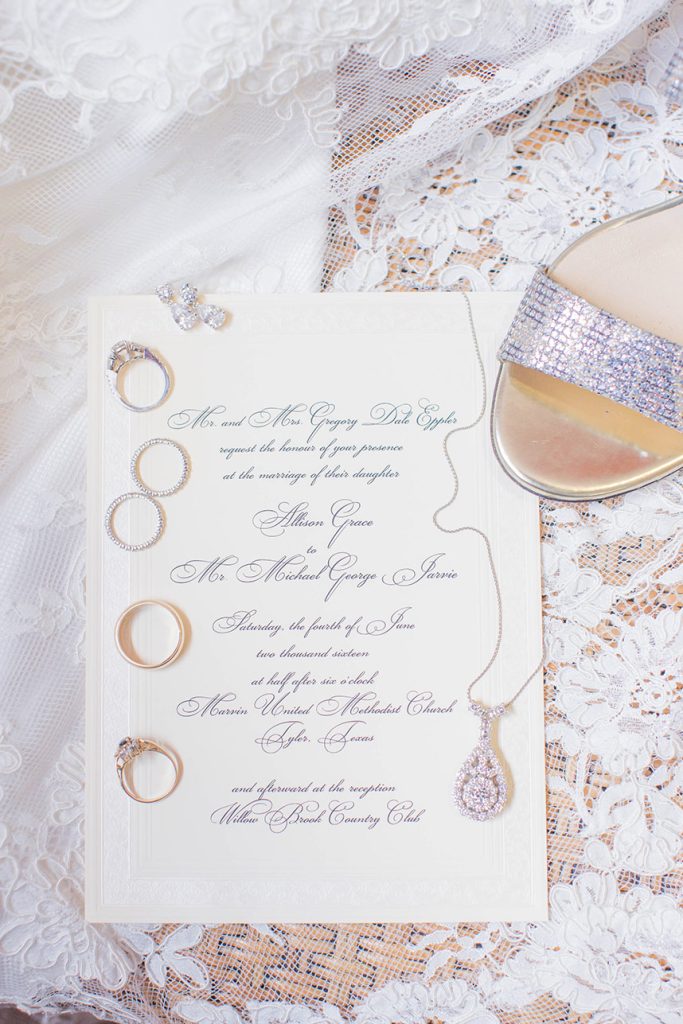 Mr. and Mrs. Gregory Dale Eppler
request the honour of your presence
at the marriage of their daughter
Allison Grace
to
Mr. Michael George Jarvie
Saturday, the fourth of June
two thousand sixteen
at half after six o'clock
Marvin United Methodist Church
Tyler, Texas
and afterward at the reception
Willow Brook Country Club